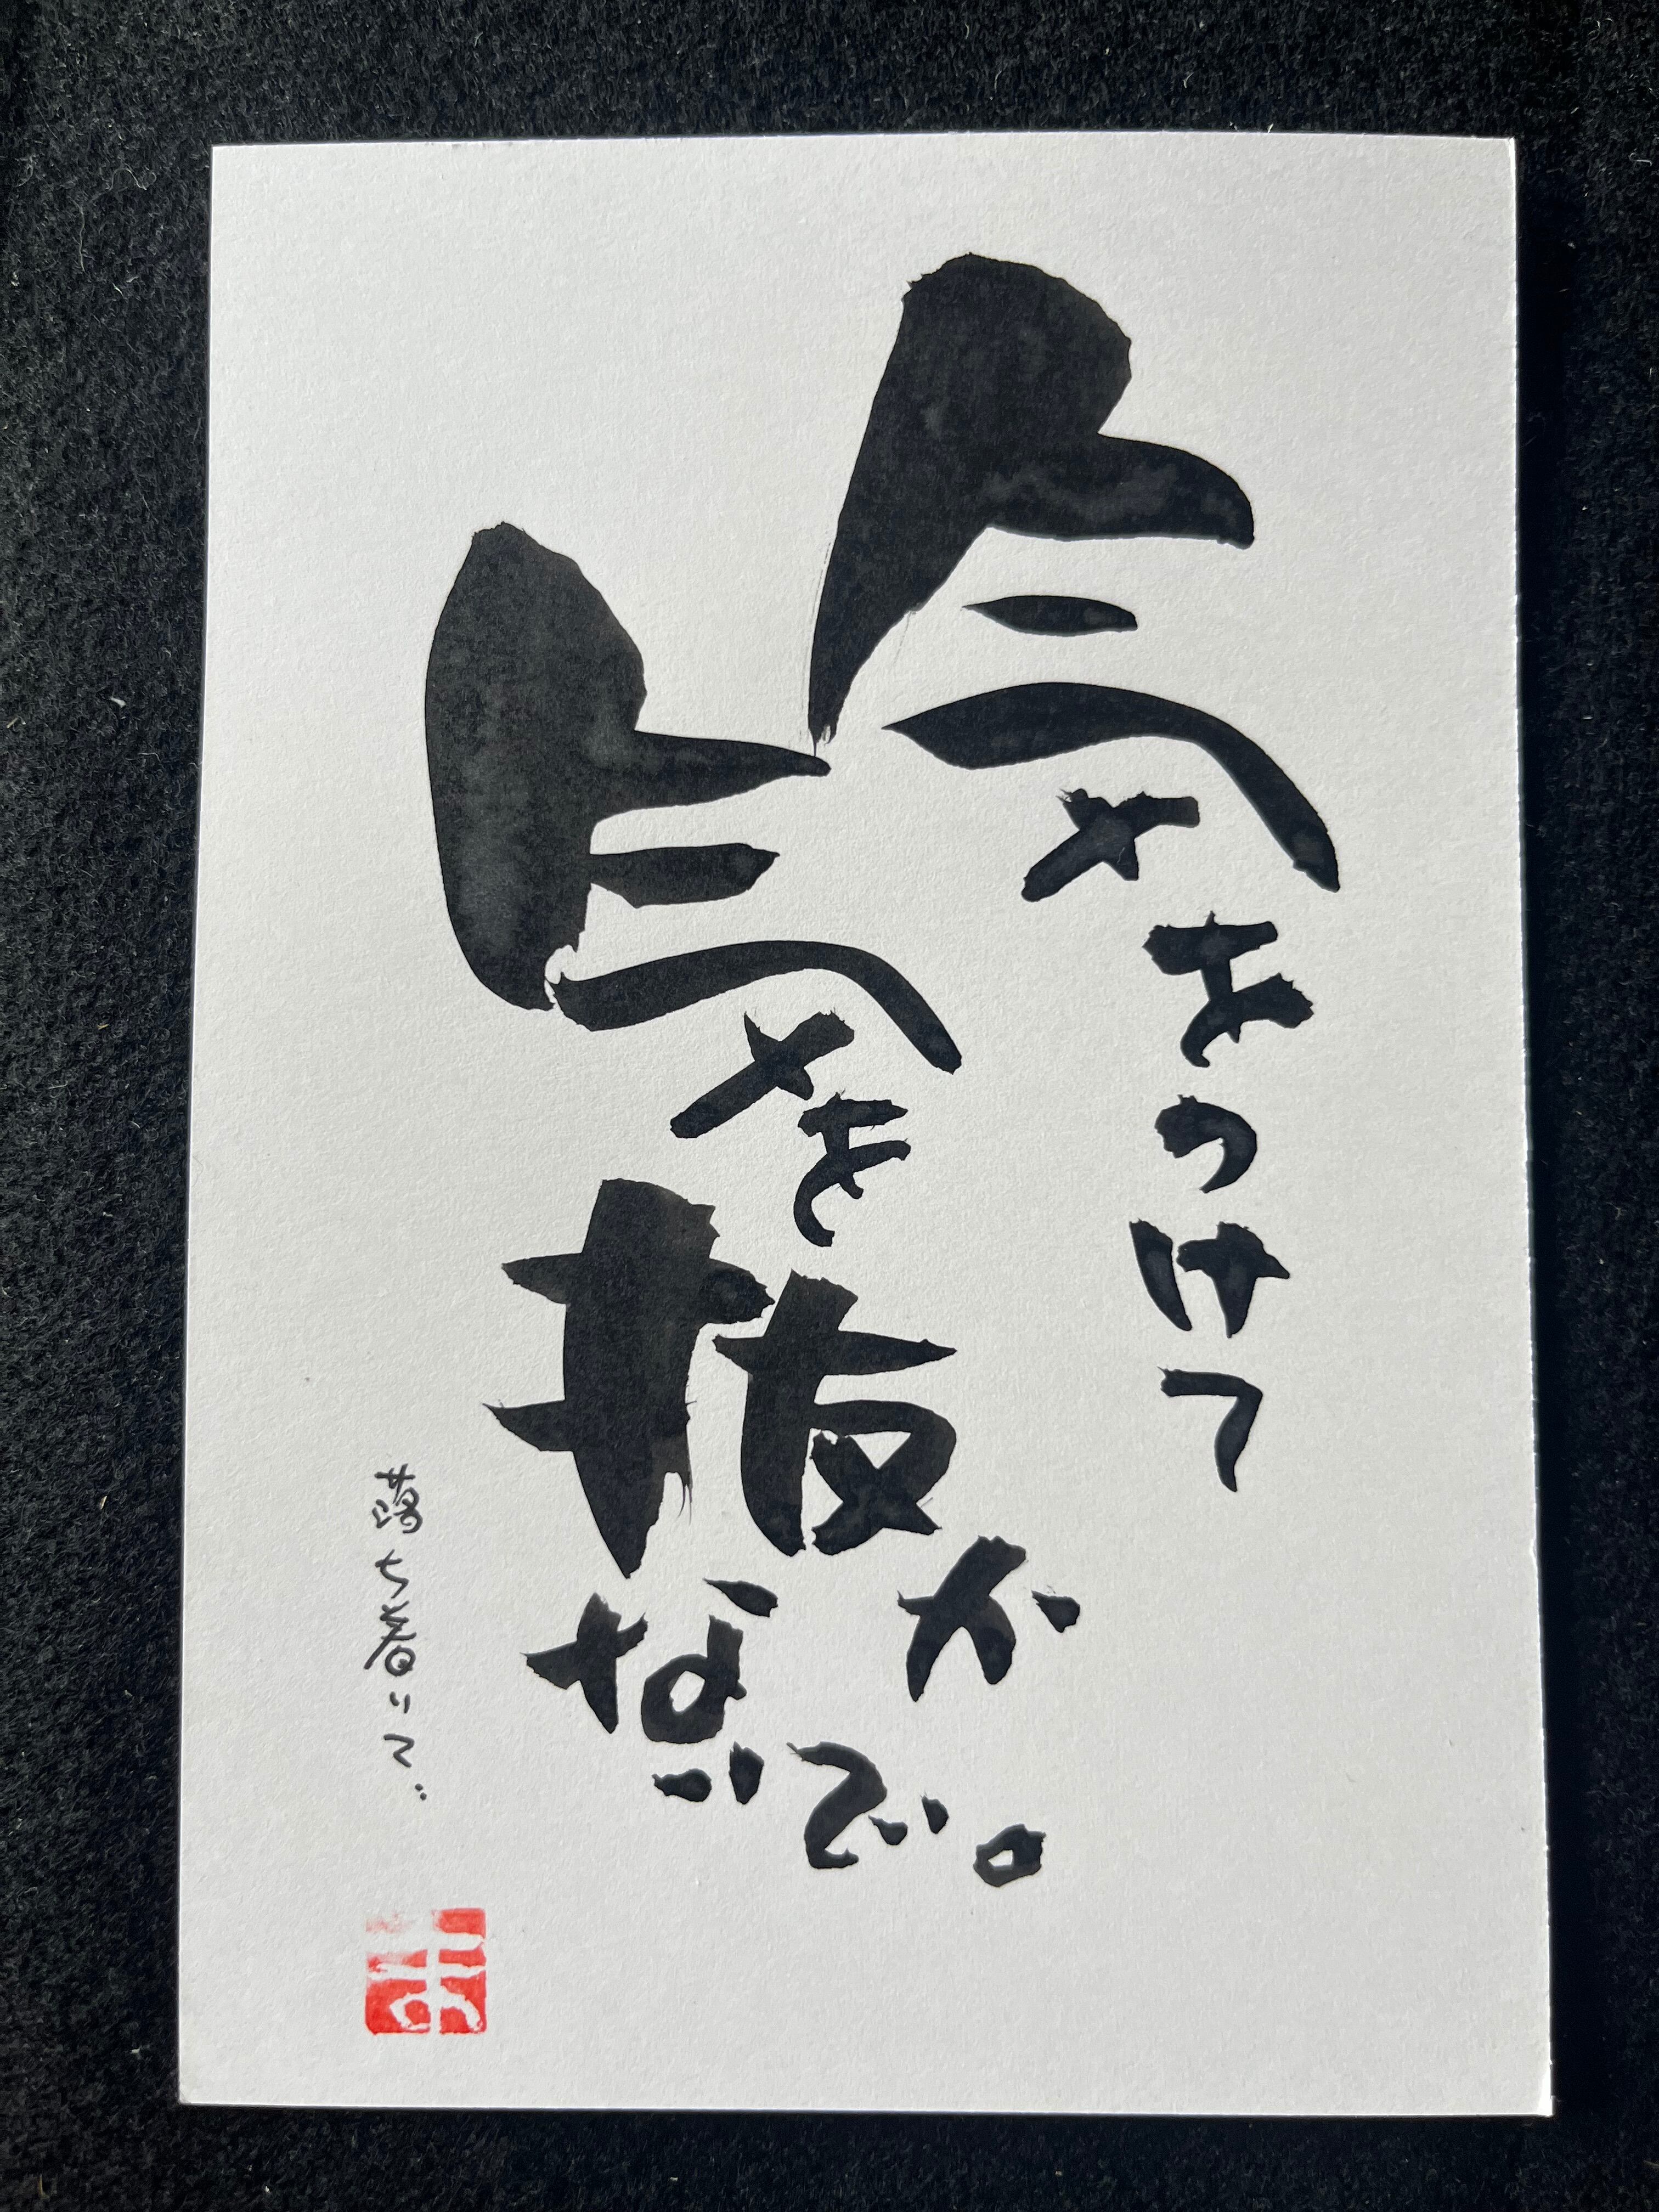 気をつけて
気を抜かないで。
落ち着いて。